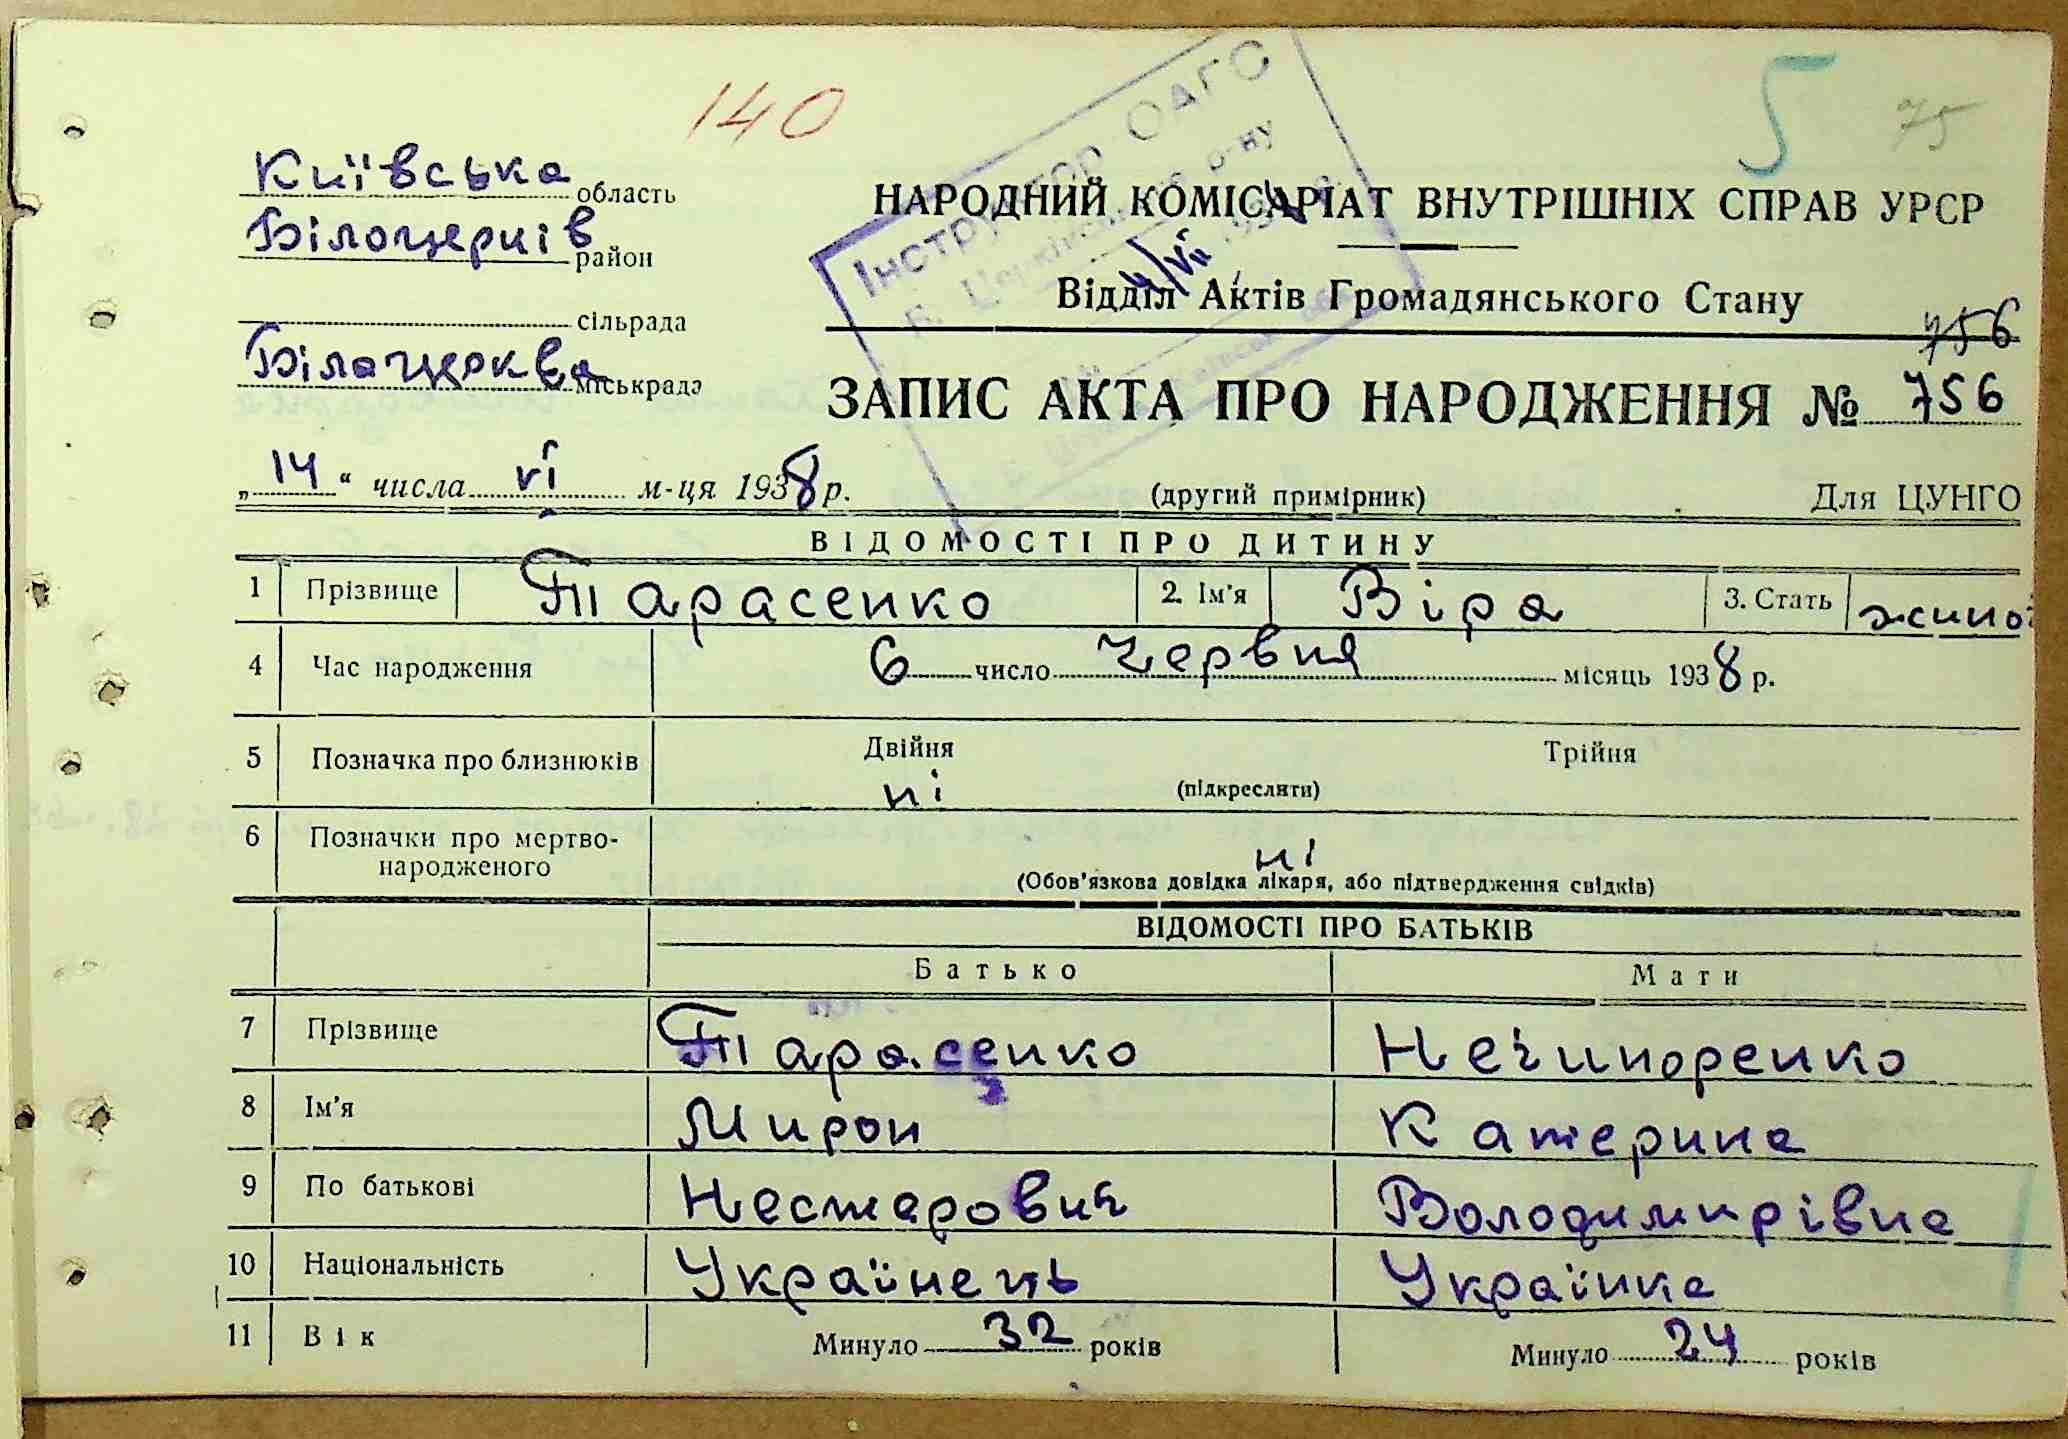 140
5
75
Київська область
Білоцерків район
сільрада
Білацерква міськрада
Інструктор ОАГС
р-ну
4/VII 193
НАРОДНИЙ КОМІСАРІАТ ВНУТРІШНІХ СПРАВ УРСР
Відділ Актів Громадянського Стану
756
ЗАПИС АКТА ПРО НАРОДЖЕННЯ № 756
„14“ числа VI м-ця 1938 р.
(другий примірник)
Для ЦУНГО
ВІДОМОСТІ ПРО ДИТИНУ
1 Прізвище Тарасенко 2. Ім'я Віра 3. Стать жіно
4 Час народження 6 число Червня місяць 1938 р.
5 Позначка про близнюків Двійня Трійня
ні (підкреслити)
6 Позначки про мертво-
народженого
ні
(Обов'язкова довідка лікаря, або підтвердження свідків)
ВІДОМОСТІ ПРО БАТЬКІВ
Батько Мати
7 Прізвище Тарасенко Нечипоренко
8 Ім'я Мирон Катерина
9 По батькові Нестерович Володимирівна
10 Національність Українець Українка
11 Вік Минуло 32 років Минуло 24 років